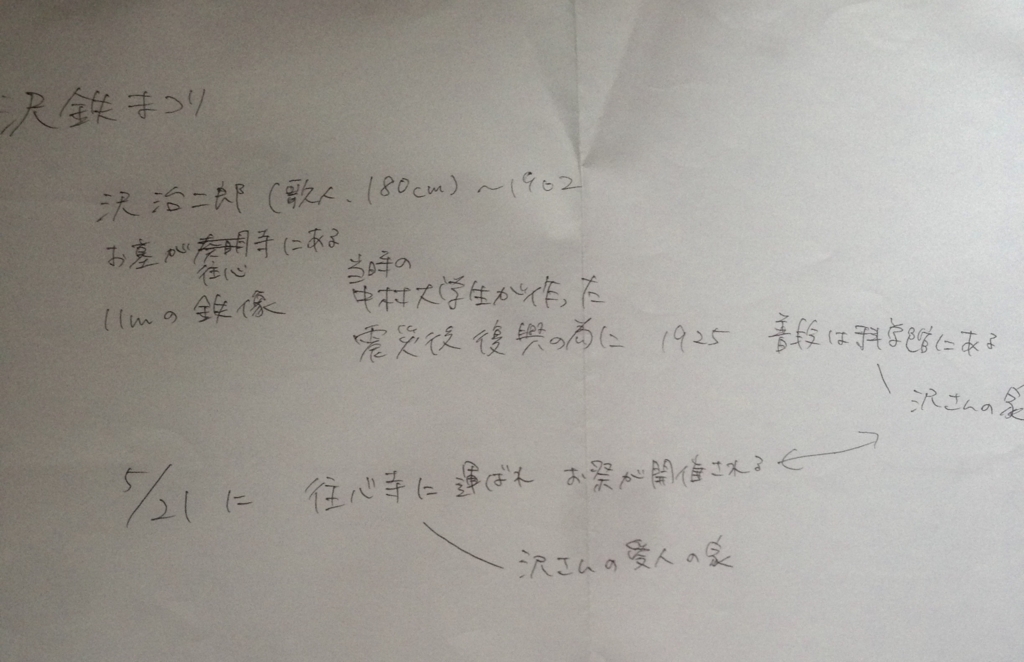 沢鉄まつり
沢治二郎(歌人、180cm)〜1902
お墓が往心寺にある
11mの鉄像
当時の
中村大学生が作った
震災後復興の為に 1925 普段は科学館にある
沢さんの家
5/21に 往心寺に運ばれ お祭が開催される
沢さんの愛人の家